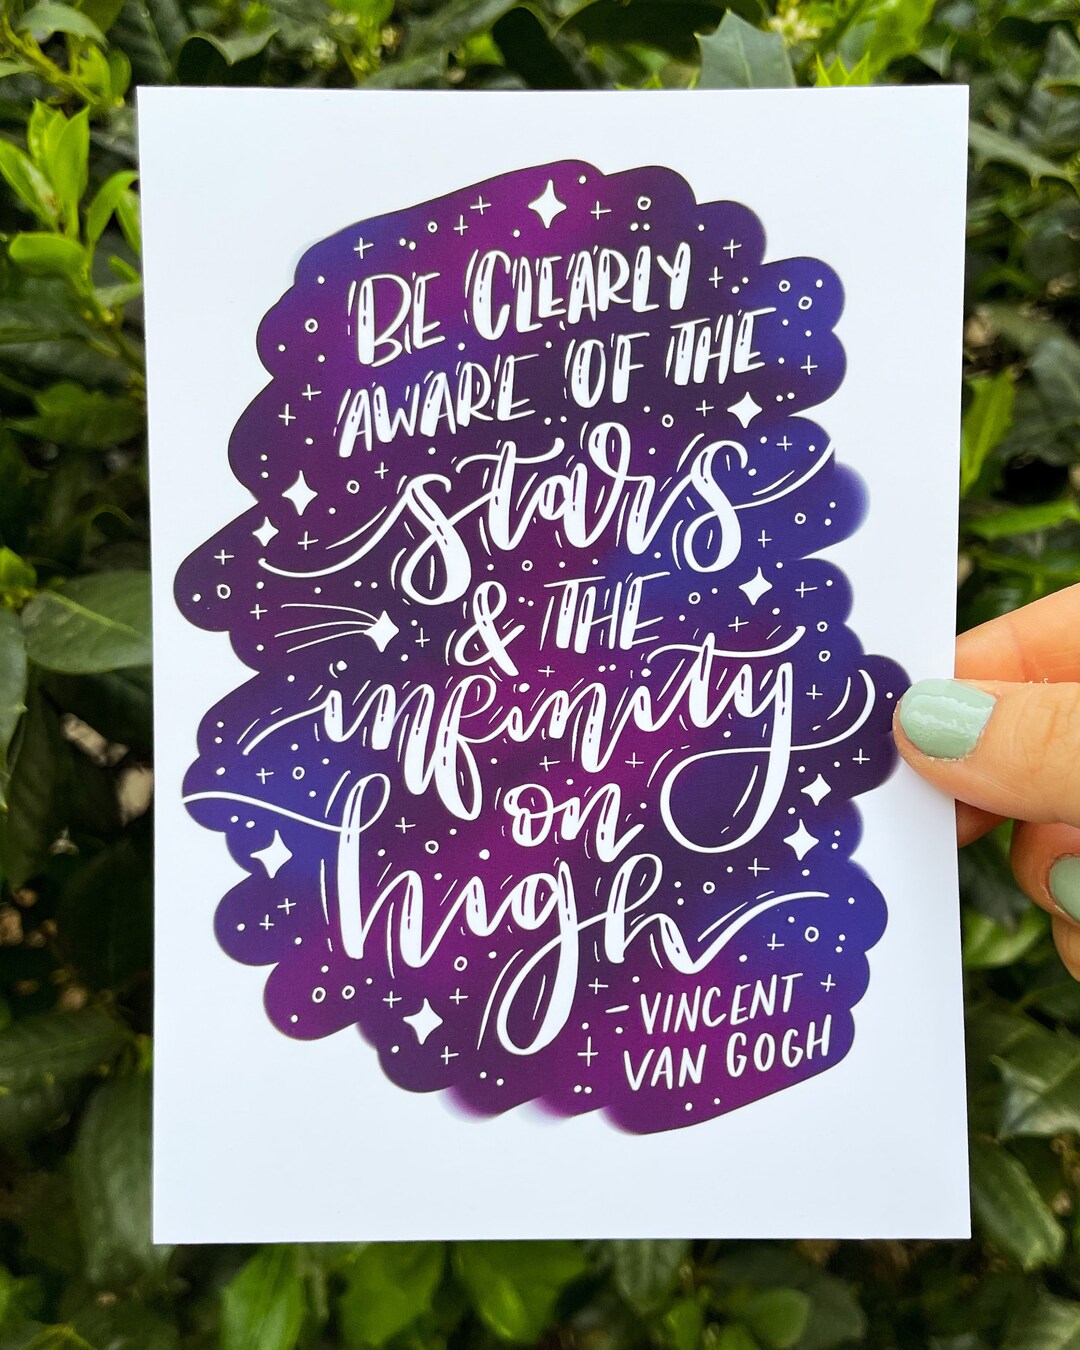 BE CLEARLY
AWARE OF THE
stars
& THE
infinity
on
high
-VINCENT
VAN GOGH